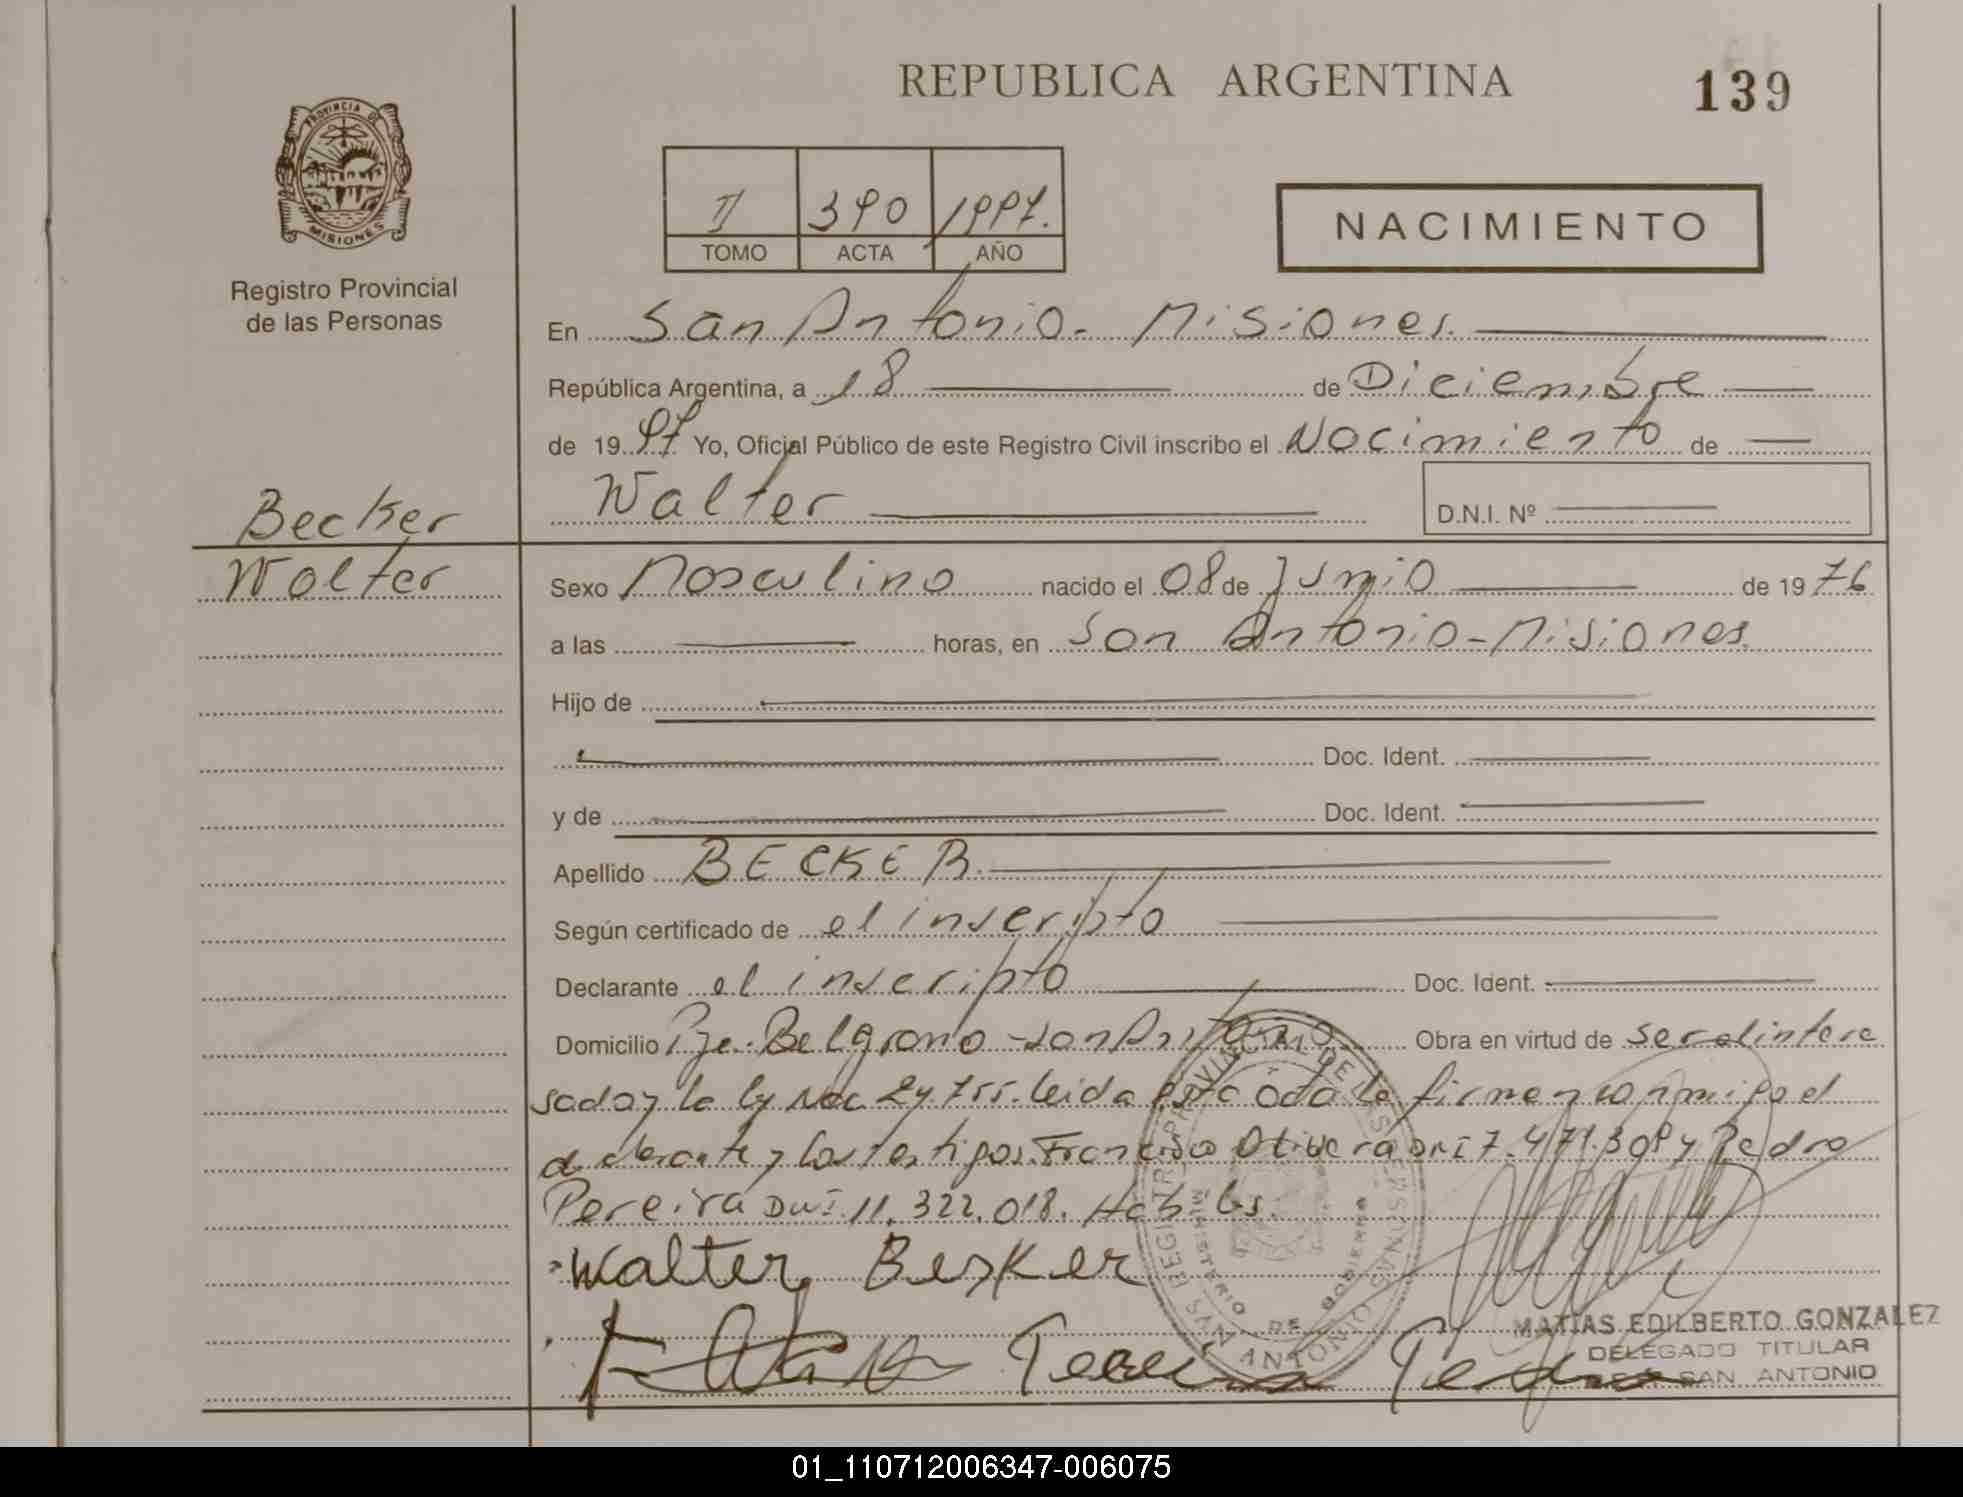 REPUBLICA ARGENTINA
139
PROVINCIA DE
MISIONES
Registro Provincial
de las Personas
II 390 1997.
TOMO ACTA AÑO
NACIMIENTO
En San Antonio - Misiones.
República Argentina, a 18 de Diciembre
de 1997 Yo, Oficial Público de este Registro Civil inscribo el Nacimiento de
Walter D.N.I. Nº
Becker
Walter
Sexo Masculino nacido el 08 de Junio de 1976
a las horas, en San Antonio - Misiones.
Hijo de
Doc. Ident.
y de Doc. Ident.
Apellido BECKER.
Según certificado de el inscripto
Declarante el inscripto Doc. Ident.
Domicilio Pje. Belgrano - San Antonio Obra en virtud de ser el intere
sado y la ley Nac 24755. Leida esta acta la firman conmigo el
declarante y los testigos Francisco Olivera DNI 7.471.309 y Pedro
Pereira DNI 11.322.018.
Walter Besker
Pereira Pedro
REGISTRO PROVINCIAL DE LAS PERSONAS
MINISTERIO DE GOBIERNO
SAN ANTONIO
MATIAS EDILBERTO GONZALEZ
DELEGADO TITULAR
SAN ANTONIO
01_110712006347-006075